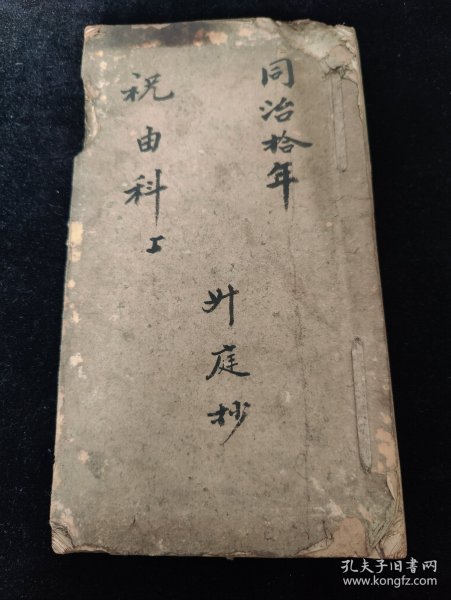 同治拾年
廾庭抄
祝由科上
孔夫子旧书网
www.kongfz.com